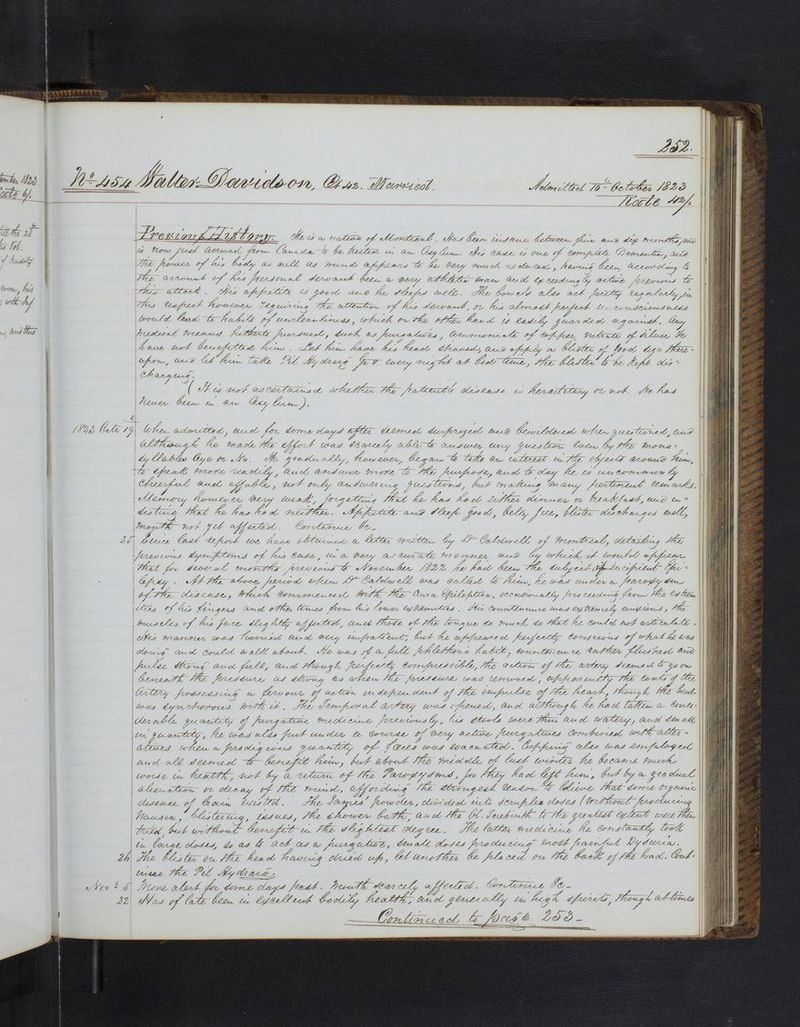 252.
No 454 Walter Davidson, Æt 42. Married. Admitted 10th October 1823
Rate 42/
Previous History. He is a native of Montreal. Has been insane between five and six months, and
is now just arrived from Canada to be treated in an Asylum. His case is one of complete Dementia, and
the power of his body as well as mind appears to be very much reduced, having been, according to
the account of his personal servant been a very athletic man and exceedingly active previous to
this attack. His appetite is good and he sleeps well. The bowels also act pretty regularly, in
this respect however requiring the attention of his servant, or his almost perfect unconsciousness
would lead to habits of uncleanliness, which on the other hand is easily guarded against. Any
medical means hitherto pursued, such as purgatives, ammoniate of copper, nitrate of silver &c
have not benefitted him. Let him have his head shaved, and apply a blister of good size there-
upon, and let him take Pil Hydrarg Gr v every night at bed time, the blister to be kept dis-
charging.
(It is not ascertained whether the patient's disease is hereditary or not. He has
never been in an Asylum).
1823 Octr 19 When admitted, and for some days after seemed surprized and bewildered when questioned, and
although he made the effort was scarcely able to answer any question even by the mono-
syllables Aye or No. He gradually, however, began to take an interest in the objects around him,
to speak more readily, and answer more to the purpose, and to day he is uncommonly
cheerful and affable, not only answering questions, but making many pertinent remarks.
Memory however very weak, forgetting that he has had either dinner or breakfast, and in-
sisting that he has had neither. Appetite and sleep good, belly free, blister discharges well,
mouth not yet affected. Continue &c.
25 Since last report we have obtained a letter written by Dr Caldwell of Montreal, detailing the
previous symptoms of his case, in a very accurate manner and by which it would appear
that for several months previous to November 1822 he had been the subject of incipient Epi-
lepsy. At the above period when Dr Caldwell was called to him, he was under a paroxysm
of the disease, which commenced with the Aura Epileptica, occasionally proceeding from the extrem-
ities of his fingers and other times from his lower extremities. His countenance was extremely anxious, the
muscles of his face slightly affected, and those of the tongue so much so that he could not articulate.
His manner was hurried and very impatient, but he appeared perfectly conscious of what he was
doing and could walk about. He was of a full plethoric habit, countenance rather flushed and
pulse strong and full, and though perfectly compressible, the action of the artery seemed to go on
beneath the pressure as strong as when the pressure was removed, apparently the coats of the
artery possessing a fervour of action independent of the impulse of the heart, though the beat
was synchronous with it. The Temporal artery was opened, and although he had taken a consi-
derable quantity of purgative medicine previously, his stools were thin and watery, and small
in quantity, he was also put under a course of very active purgatives combined with alter-
atives when a prodigious quantity of fæces was evacuated. Cupping also was employed
and all seemed to benefit him, but about the middle of last winter he became much
worse in health, not by a return of the Paroxysms, for they had left him, but by a gradual
alienation or decay of the mind, affording the strongest reason to believe that some organic
disease of brain existed. The James' powder, divided into scruple doses (without producing
nausea, blistering, issues, the shower bath, and the Ol. Terebinth to the greatest extent were then
tried, but without benefit in the slightest degree. The latter medicine he constantly took
in large doses, so as to act as a purgative, small doses producing most painful Dysuria.
26 The blister on the head having dried up, let another be placed on the back of the head. Cont-
inue the Pil Hydrarg.
Novr 5 More alert for some days past. Mouth scarcely affected. Continue &c.
22 Has of late been in excellent bodily health, and generally in high spirits, though at times
Continued to page 253-